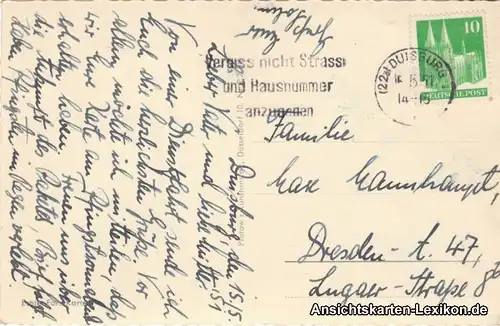 Duisburg, den 15.5.51
Lieber Vater und liebe Mutter
Von einer Dienstfahrt sende ich
Euch die herzlichsten Grüße. Vor
allem möchte ich mitteilen, daß
wir Eure Karte am Pfingstsonnabend
erhalten haben, freuen uns über
die Ankunft des Pakets, Brief folgt
haben Pfingsten im Regen verlebt
Vergiss nicht Strasse
und Hausnummer
anzugeben
(22a) DUISBURG
10
DEUTSCHE POST
Familie
Max Mannhaupt,
Dresden-A. 47,
Lugaer-Straße 8
Echte Foto
Ansichtskarten-Lexikon.de